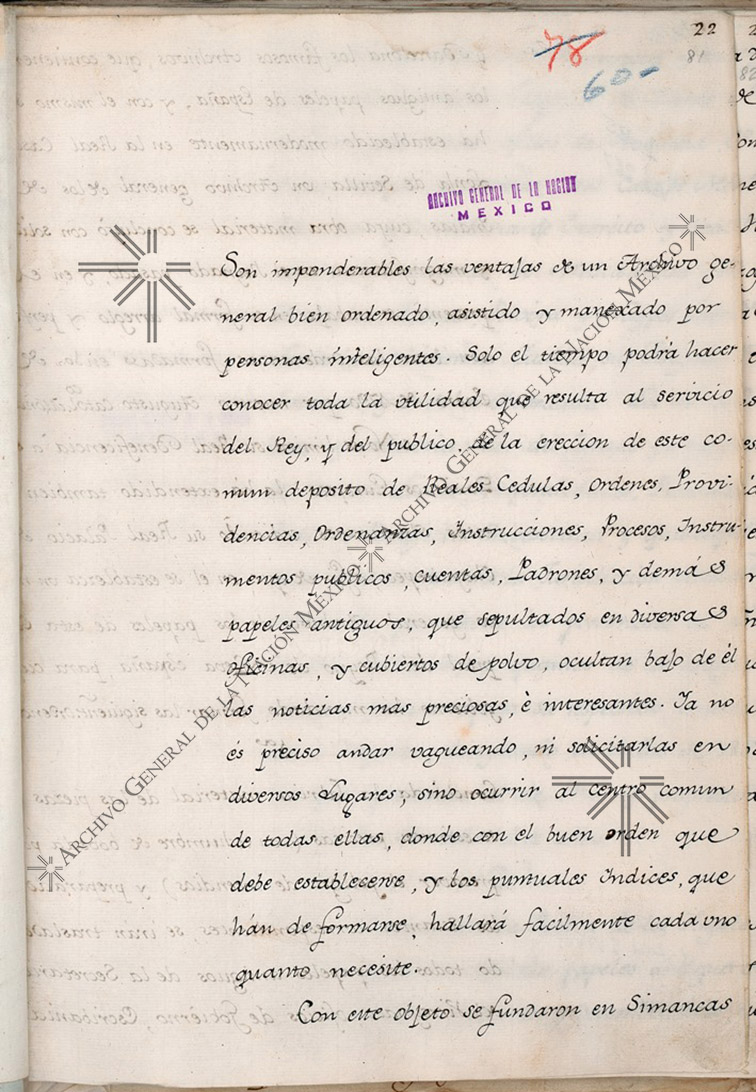 22
78
60-
81
ARCHIVO GENERAL DE LA NACION
MEXICO
Son imponderables las ventajas de un Archivo ge-
neral bien ordenado, asistido y manexado por
personas inteligentes. Solo el tiempo podrá hacer
conocer toda la utilidad que resulta al servicio
del Rey, y del publico de la ereccion de este co-
mun deposito de Reales Cedulas, ordenes, Provi-
dencias, Ordenanzas, Instrucciones, Procesos, Instru-
mentos publicos, cuentas, Padrones, y demás
papeles antiguos, que sepultados en diversas
oficinas, y cubiertos de polvo, ocultan bajo de él
las noticias mas preciosas, è interesantes. Ya no
és preciso andar vagueando, ni solicitarlas en
diversos Lugares, sino ocurrir al centro comun
de todas ellas, donde con el buen orden que
debe establecerse, y los puntuales Indices, que
hán de formarse, hallará facilmente cada uno
quanto necesite.
Con este objeto se fundaron en Simancas
ARCHIVO GENERAL DE LA NACIÓN MÉXICO
ARCHIVO GENERAL DE LA NACIÓN MÉXICO